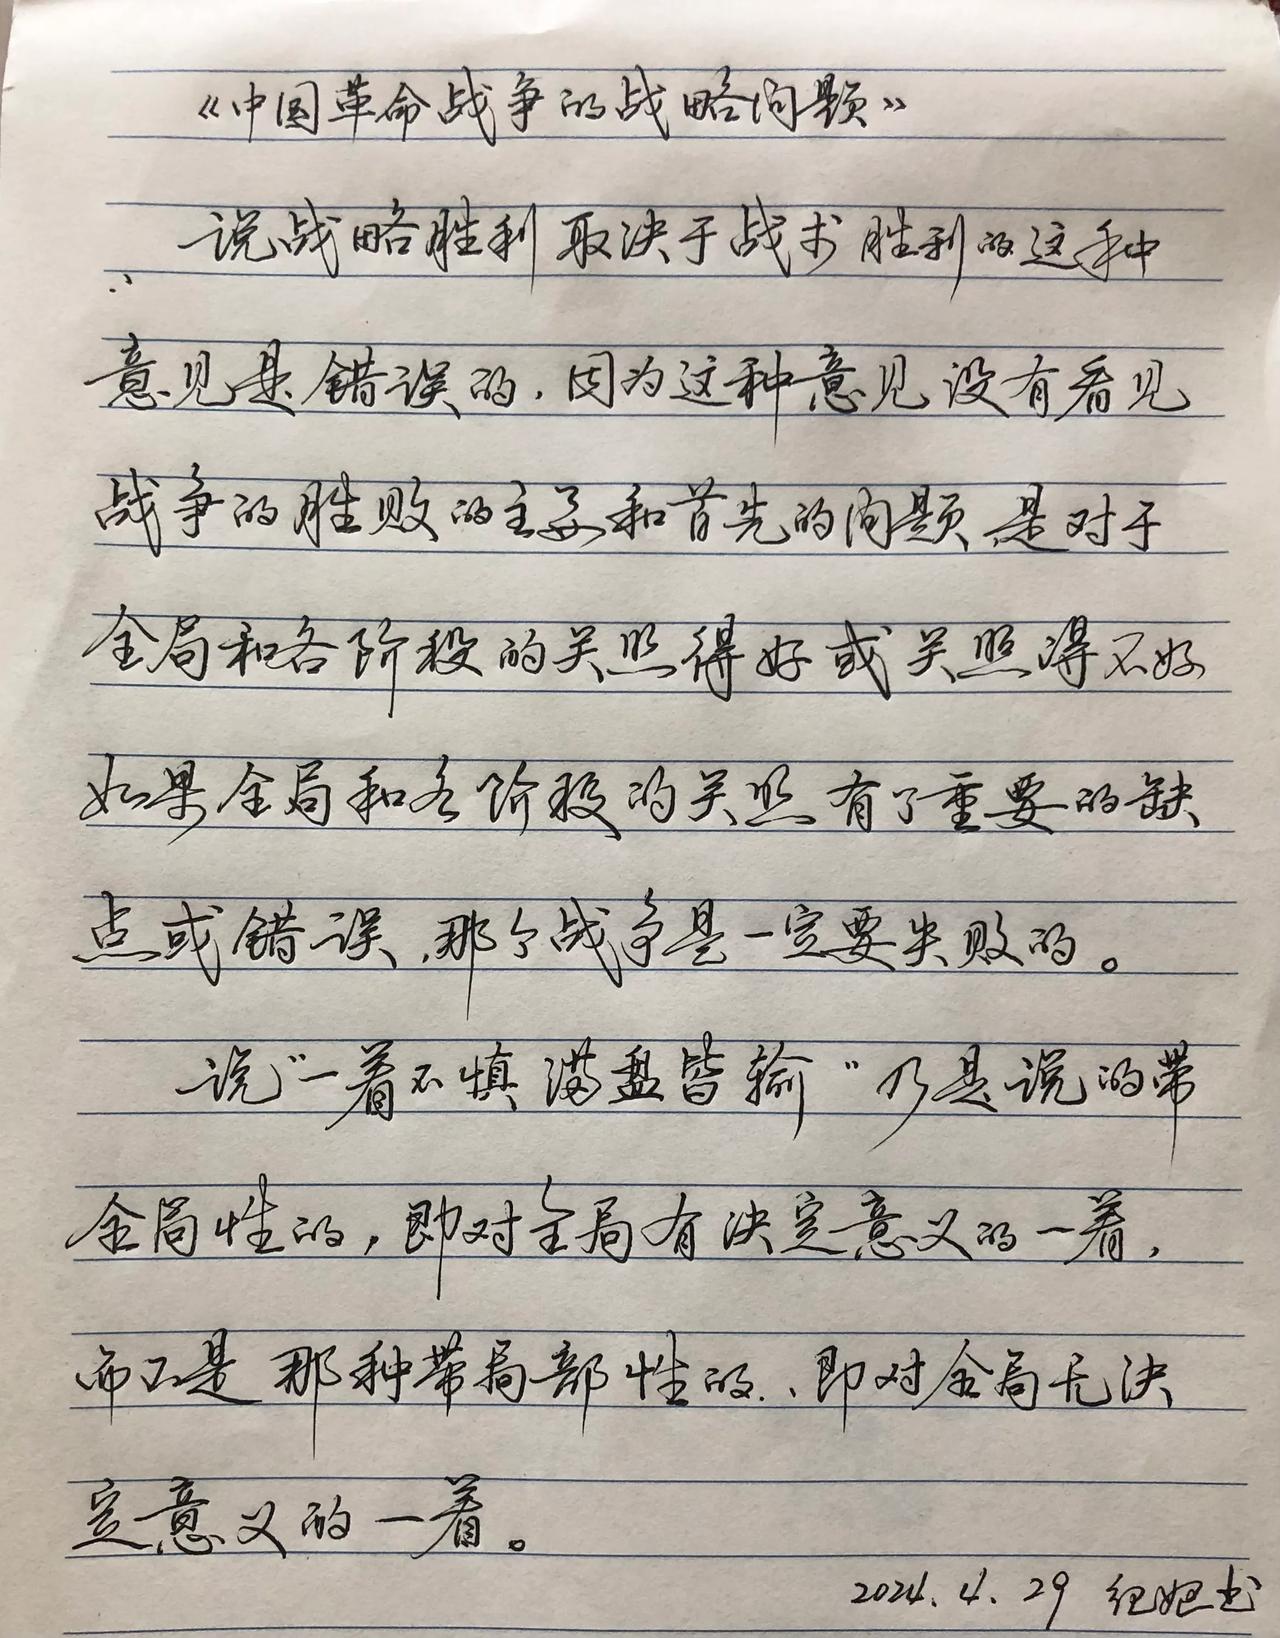 《中国革命战争的战略问题》
说战略胜利取决于战术胜利的这种
意见是错误的，因为这种意见没有看见
战争的胜败的主要和首先的问题，是对于
全局和各阶段的关照得好或关照得不好
如果全局和各阶段的关照有了重要的缺
点或错误，那个战争是一定要失败的。
说“一着不慎满盘皆输”乃是说的带
全局性的，即对全局有决定意义的一着，
而不是那种带局部性的、即对全局无决
定意义的一着。
2024.4.29 书